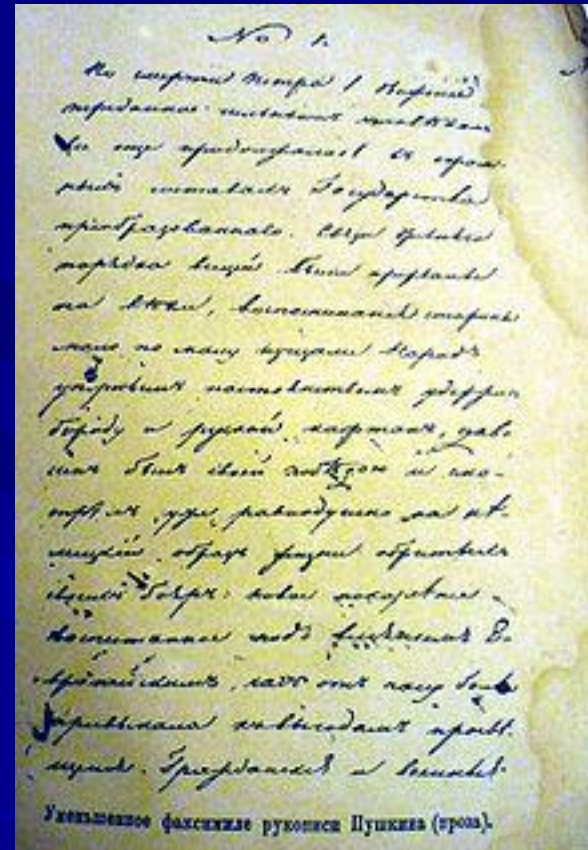 № 1.
По смерти Петра I движение
переданное сильнымъ человѣкомъ
все еще продолжалось въ огром-
ныхъ составахъ Государства
преобразованнаго. Связи древняго
порядка вещей были прерваны
на вѣки, воспоминанія старины
мало по малу исчезали. Народъ
упорнымъ постоянствомъ удержавъ
бороду и русской кафтанъ, дово-
ленъ былъ своей побѣдою и смо-
трѣлъ уже равнодушно на нѣ-
мецкій образъ жизни обритыхъ
своихъ бояръ. новое поколѣніе
воспитанное подъ вліяніемъ Е-
вропейскимъ, часъ отъ часу болѣе
привыкало къ выгодамъ просвѣ-
щенія. Гражданскіе и военные
Уменьшенное факсимиле рукописи Пушкина (проза).